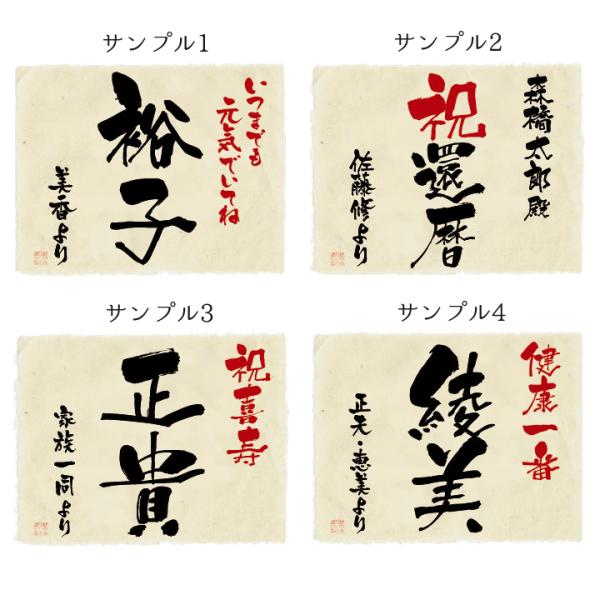 サンプル1
いつまでも
元気でいてね
裕子
美香より
サンプル2
森橋太郎殿
祝
還暦
佐藤修より
サンプル3
祝喜寿
正貴
家族一同より
サンプル4
健康一番
綾美
正夫・恵美より